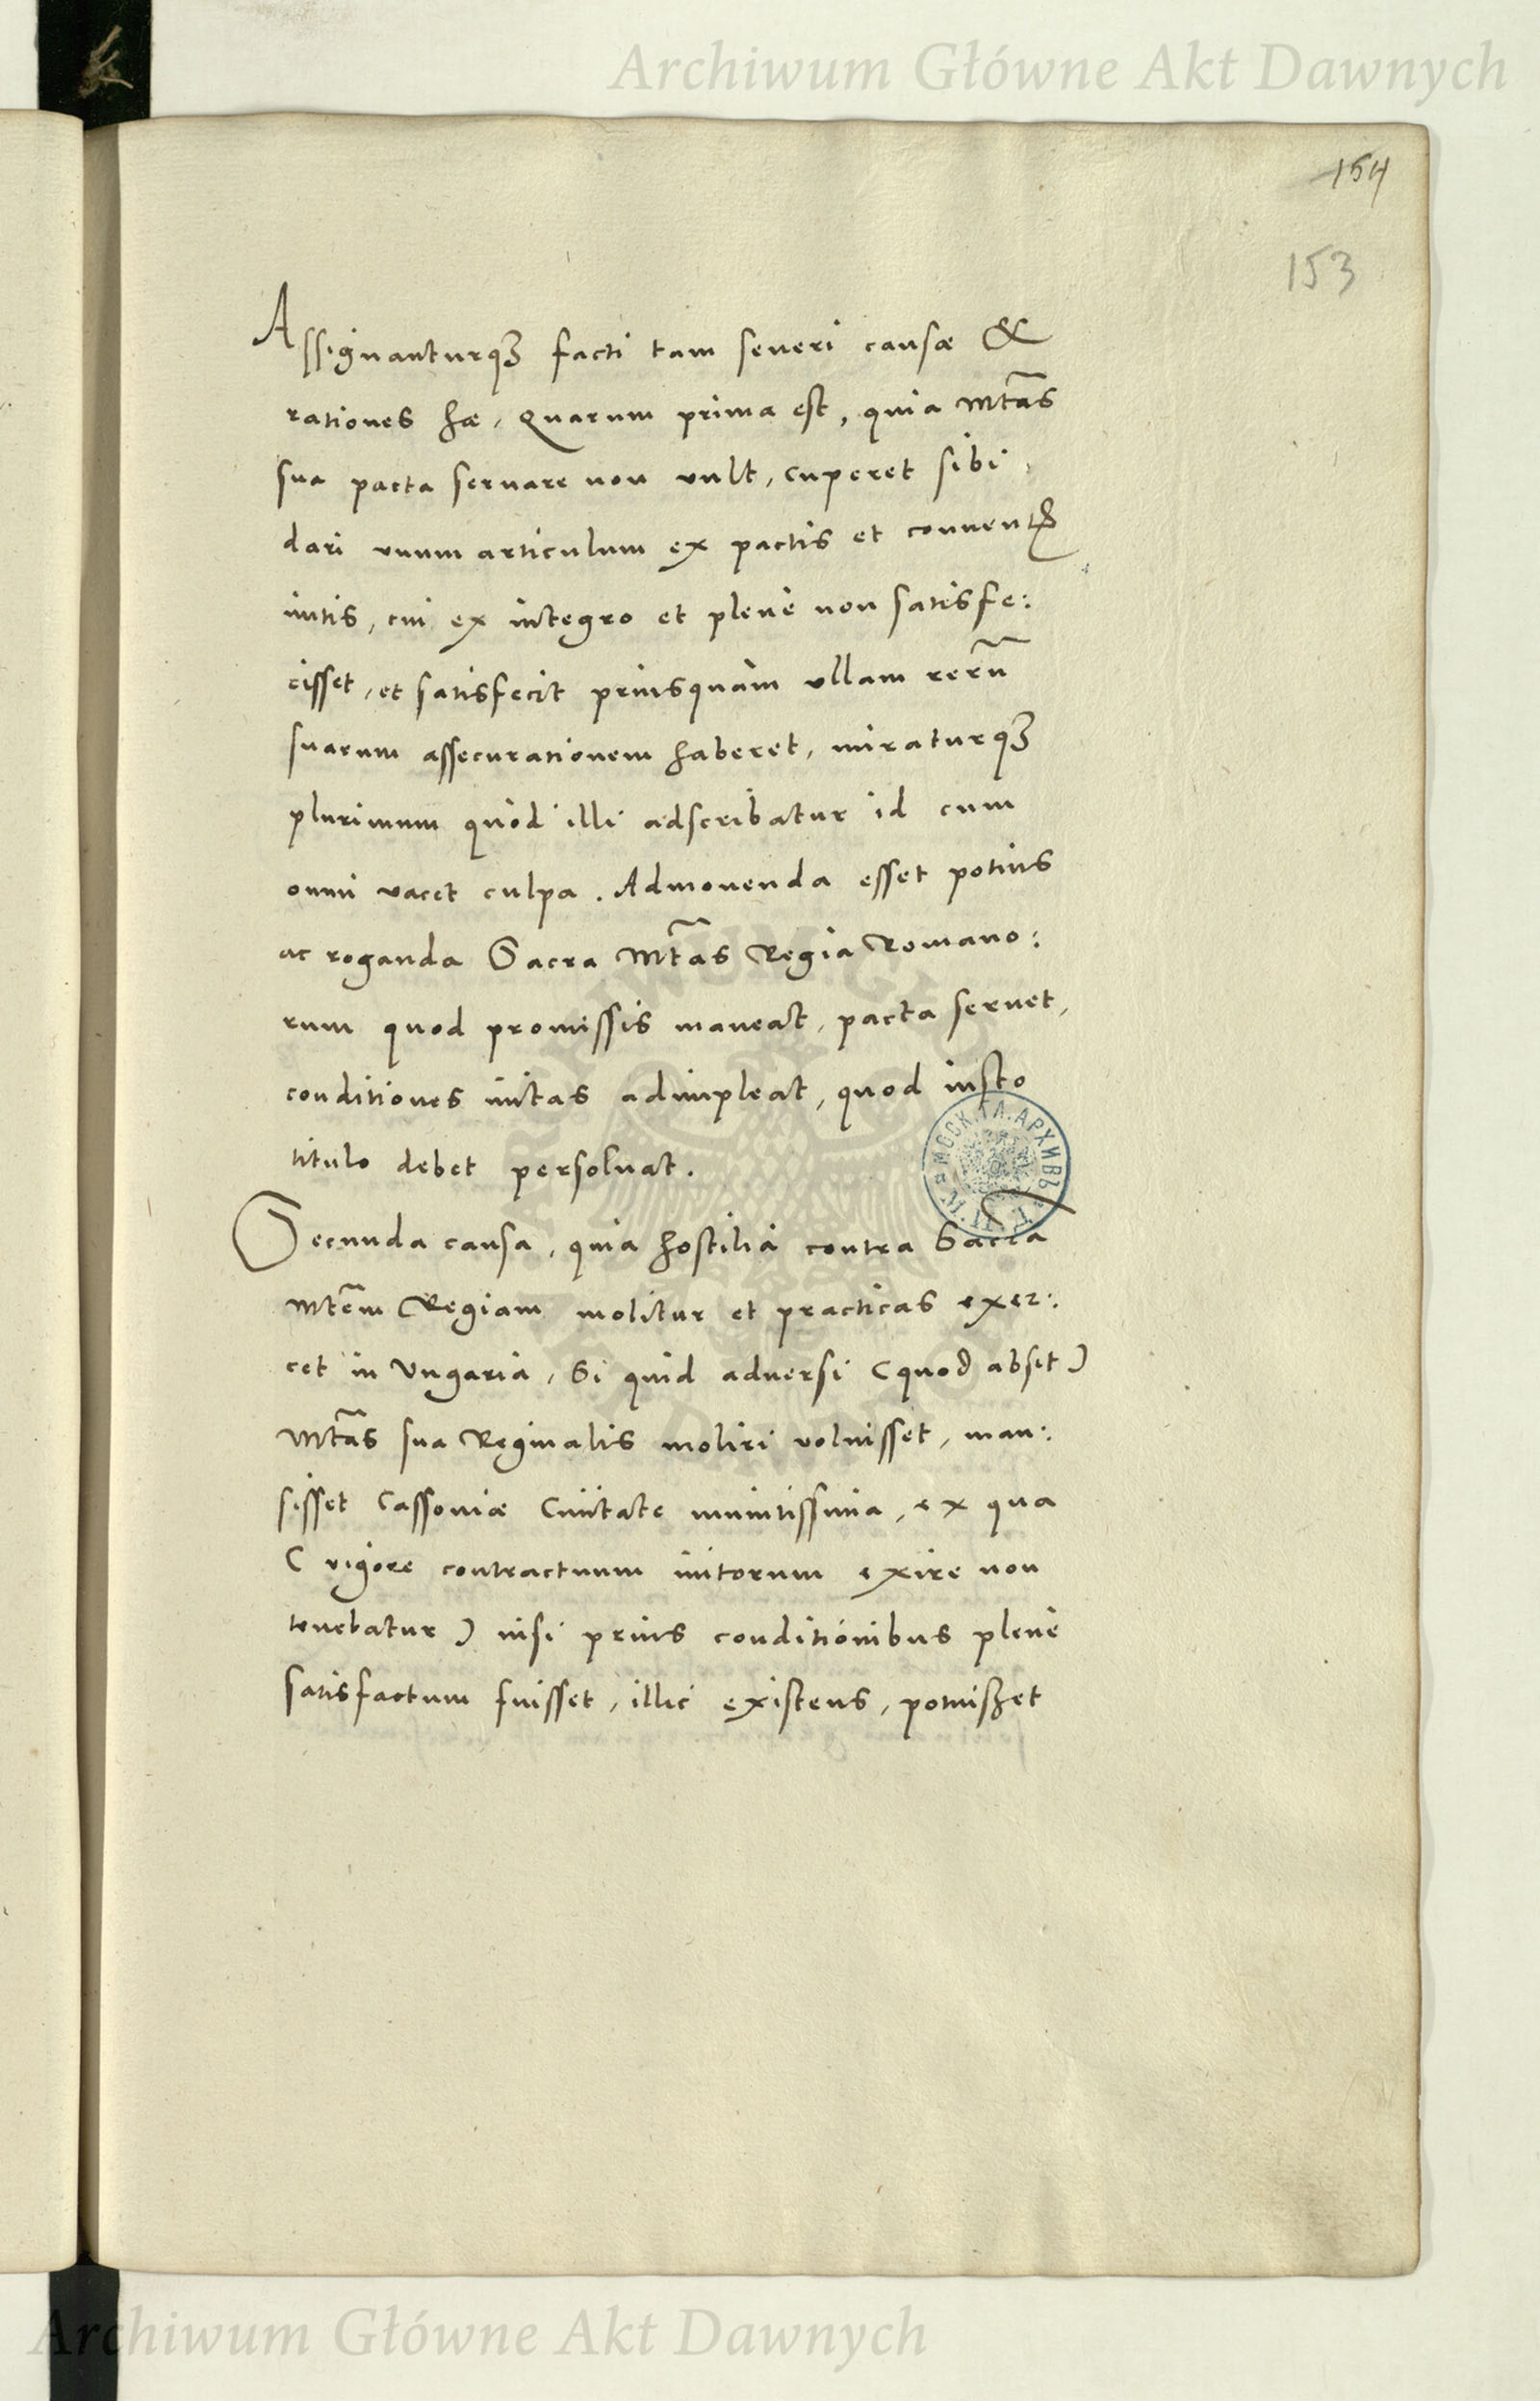 Archiwum Główne Akt Dawnych
154
153
Assignanturq3 facti tam seueri causæ &
rationes hæ, Quarum prima est, quia Mtãs
sua pacta seruare non vult, cuperet sibi
dari vnum articulum ex pactis et conuentis
initis, cui ex integro et plene non satisfe:
cisset, et satisfecit priusquam vllam rerũ
suarum assecurationem haberet, miraturq3
plurimum quòd illi adscribatur id cum
omni vacet culpa. Admonenda esset potius
ac roganda Sacra Mtãs Regia Romano:
rum quod promissis maneat, pacta seruet,
conditiones initas adimpleat, quod iusto
titulo debet persoluat.
МОСК. ГЛ. АРХИВЪ
Secunda causa, quia hostilia contra Sacrã
Mtẽm Regiam molitur et practicas exer:
cet in Vngaria, Si quid aduersi (quod absit)
Mtãs sua Reginalis moliri voluisset, man:
sisset Cassouiæ Ciuitate munitissima, ex qua
(vigore contractuum initorum exire non
tenebatur) nisi prius conditionibus plene
satisfactum fuisset, illic existens, potuisset
Archiwum Główne Akt Dawnych